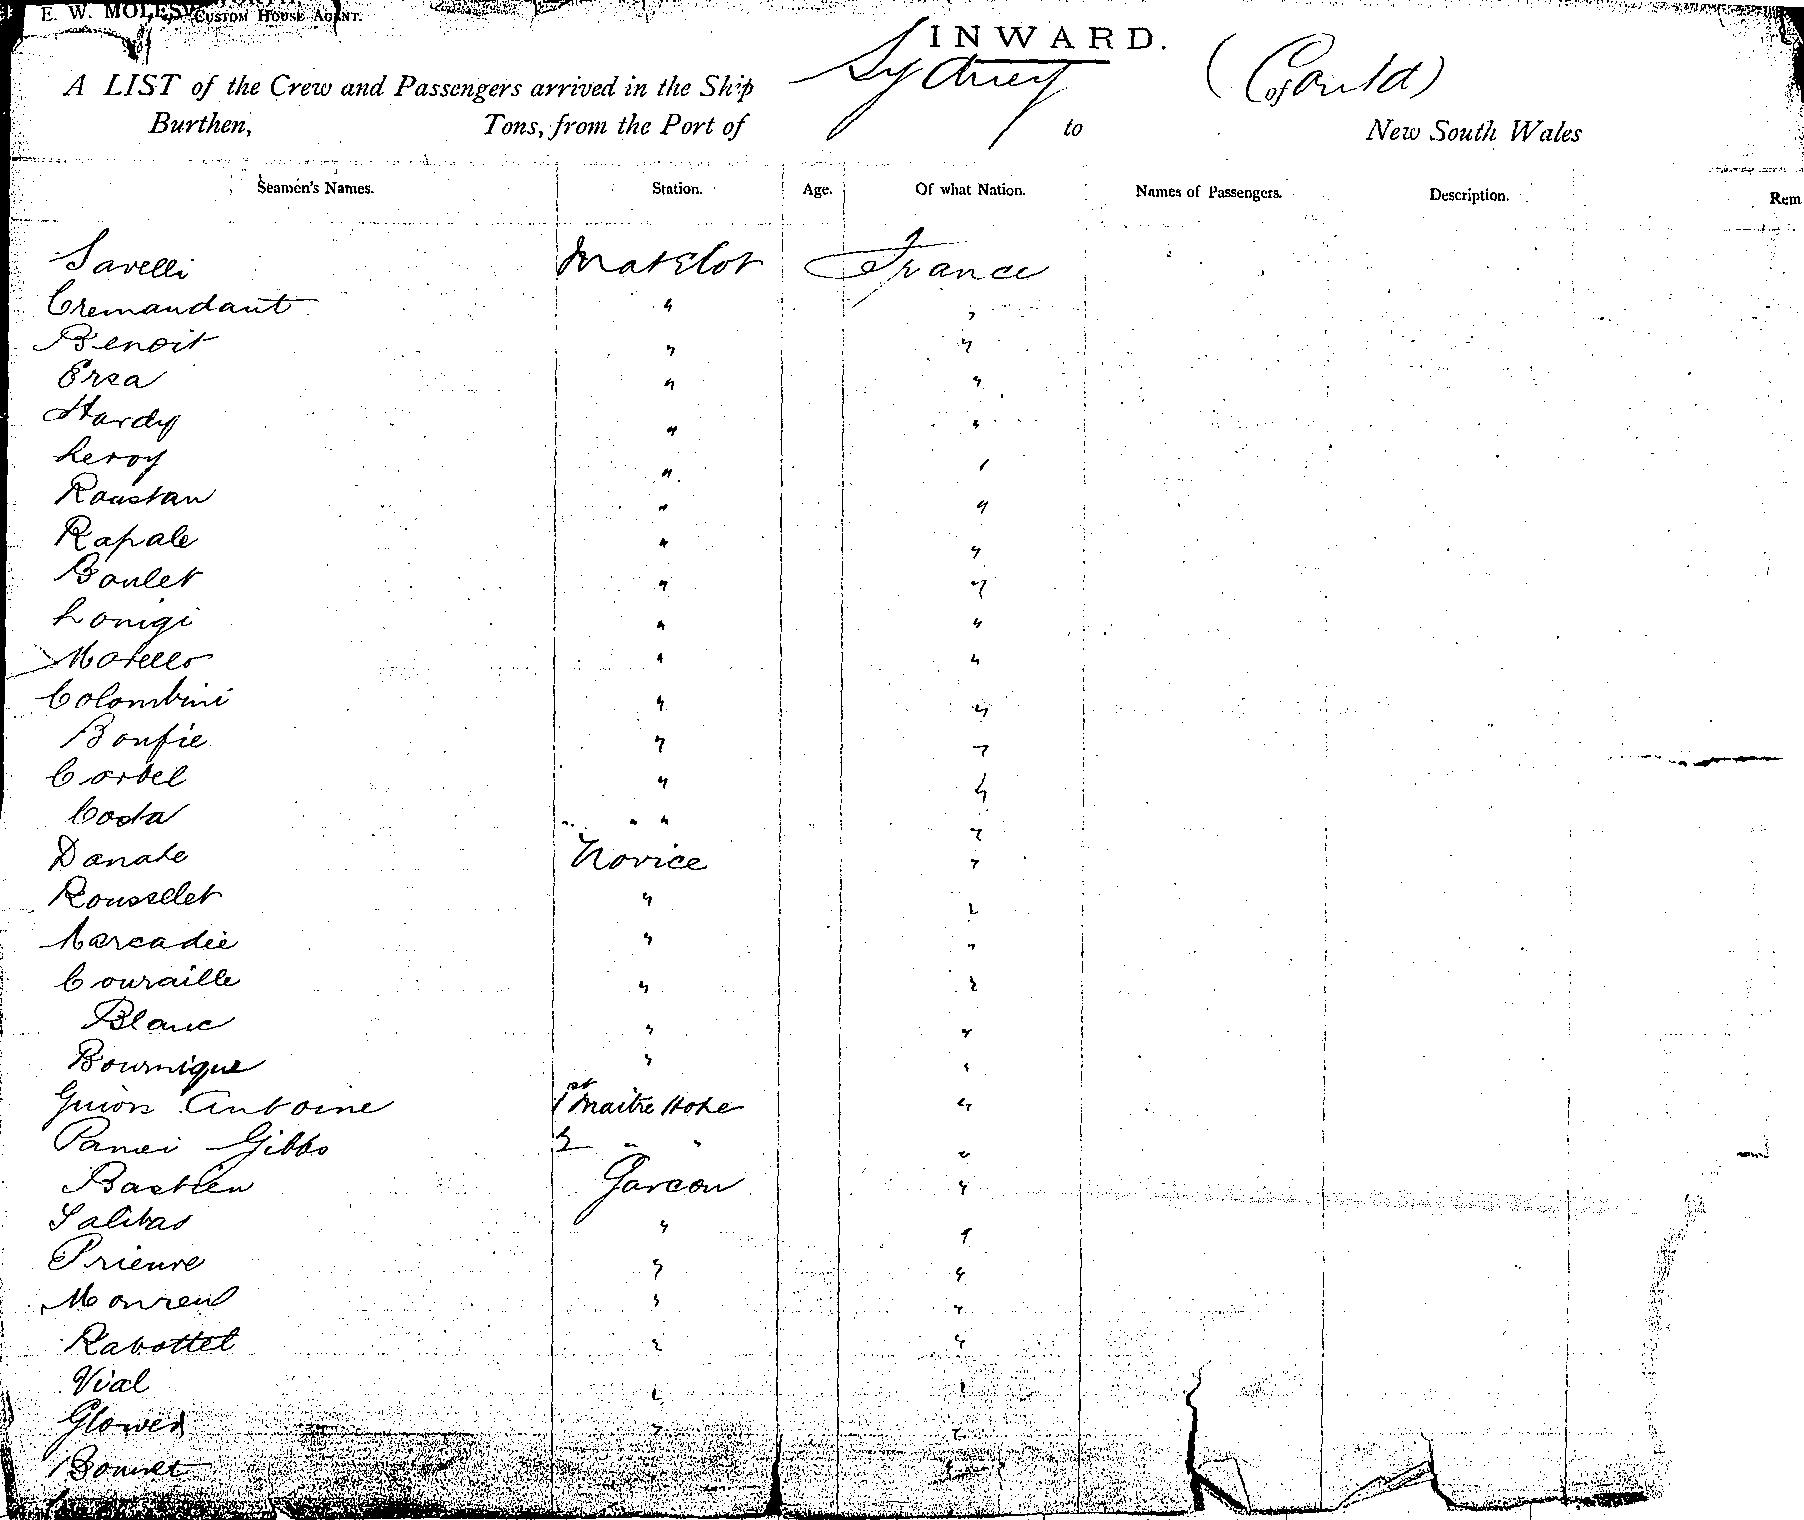 E. W. MOLESW CUSTOM HOUSE AGENT.
INWARD.
A LIST of the Crew and Passengers arrived in the Ship Sydney (Gould) of
Burthen, Tons, from the Port of to New South Wales
Seamen's Names. Station. Age. Of what Nation. Names of Passengers. Description. Rem
Savelli Matelot France
Cremandant " "
Benoit " "
Ersa " "
Hardy " "
Leroy " "
Roustan " "
Rapale " "
Boulet " "
Lonigi " "
Morello " "
Colombini " "
Bonfie " "
Corbel " "
Costa " " "
Danate Novice "
Rousselet " "
Marcadie " "
Couraille " "
Blanc " "
Bournique " "
Guion Antoine 1st Maitre Hote "
Gibbs 2 " " "
Bastien Garcon "
Salibas " "
Prieure " "
Monreul " "
Rabottet " "
Vial " "
Glower " "
Bonnet